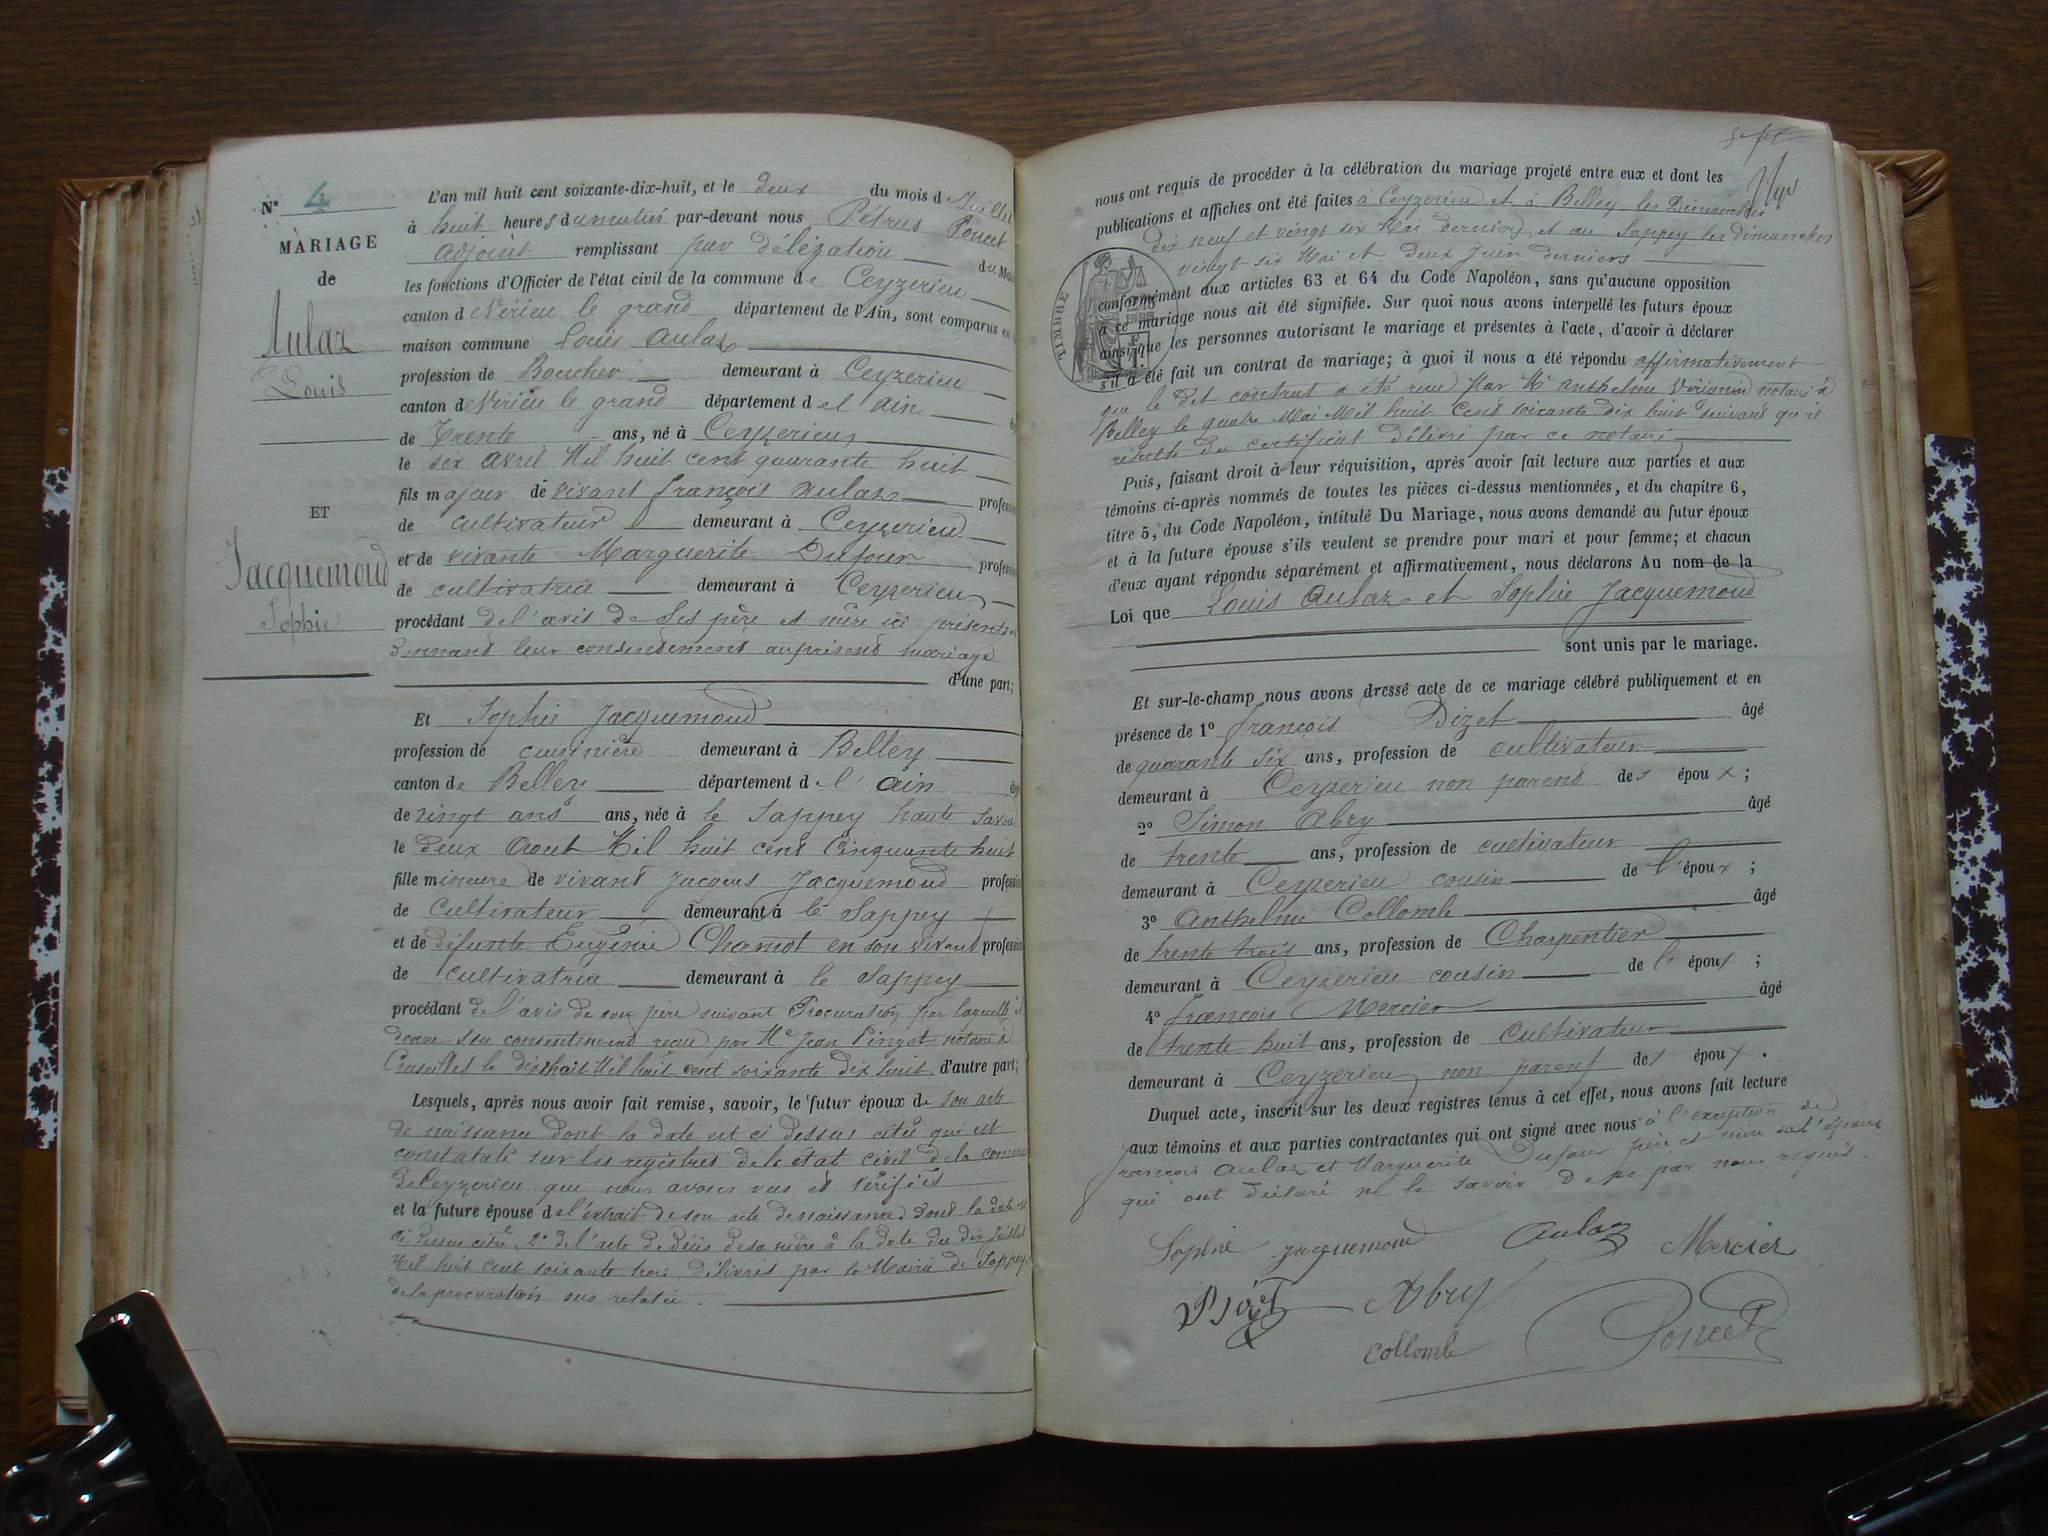 N° 4
MARIAGE
de
Aulaz
Louis
ET
Jacquemoud
Sophie
L'an mil huit cent soixante-dix-huit, et le deux du mois de Juillet
à huit heures du matin par-devant nous Pétrus Poncet
adjoint remplissant par délégation du Maire
les fonctions d'Officier de l'état civil de la commune de Ceyzerieu
canton de Virieu le grand département de l'Ain, sont comparus en
maison commune Louis Aulaz
profession de Boucher demeurant à Ceyzerieu
canton de Virieu le grand département de l'ain
de Trente ans, né à Ceyzerieu
le six avril Mil huit cent quarante huit
fils majeur de vivant françois Aulaz profession
de cultivateur demeurant à Ceyzerieu
et de vivante Marguerite Dufour profession
de cultivatrice demeurant à Ceyzerieu
procédant de l'avis de ses père et mère ici présents et
donnant leur consentement au présent mariage
d'une part;
Et Sophie Jacquemoud
profession de cuisinière demeurant à Belley
canton de Belley département de l'ain âgée
de vingt ans ans, née à le Sappey haute Savoie
le deux Aout Mil huit cent Cinquante huit
fille mineure de vivant Jacques Jacquemoud profession
de Cultivateur demeurant à le Sappey
et de défunte Eugénie Chamot en son vivant profession
de cultivatrice demeurant à le Sappey
procédant de l'avis de son père suivant Procuration par laquelle il
donne son consentement recue par Me Jean Pinget notaire à
Cruseilles le dix huit Mil huit cent soixante dix huit d'autre part;
Lesquels, après nous avoir fait remise, savoir, le futur époux de son acte
de naissance dont la date est ci dessus citée qui est
constatée sur les registres de le etat civil de la commune
de Ceyzerieu que nous avons vus et vérifiés
et la future épouse de l'extrait de son acte de naissance dont la date est
ci dessus citée, 2° de l'acte de décès de sa mère à la date du dix juillet
Mil huit cent soixante trois délivrés par la Mairie de Sappey
de la procuration sus relatée.
sept
nous ont requis de procéder à la célébration du mariage projeté entre eux et dont les
publications et affiches ont été faites à Ceyzerieu et à Belley les Dimanches
dix neuf et vingt six Mai derniers et au Sappey les dimanches
vingt six Mai et deux Juin derniers
TIMBRE
conformément aux articles 63 et 64 du Code Napoléon, sans qu'aucune opposition
à ce mariage nous ait été signifiée. Sur quoi nous avons interpellé les futurs époux
ainsi que les personnes autorisant le mariage et présentes à l'acte, d'avoir à déclarer
s'il a été fait un contrat de mariage; à quoi il nous a été répondu affirmativement
que le dit contrat a été recu par Me Anthelme notaire à
Belley le quatre Mai Mil huit Cent soixante dix huit suivant qu'il
résulte du certificat délivré par ce notaire
Puis, faisant droit à leur réquisition, après avoir fait lecture aux parties et aux
témoins ci-après nommés de toutes les pièces ci-dessus mentionnées, et du chapitre 6,
titre 5, du Code Napoléon, intitulé Du Mariage, nous avons demandé au futur époux
et à la future épouse s'ils veulent se prendre pour mari et pour femme; et chacun
d'eux ayant répondu séparément et affirmativement, nous déclarons Au nom de la
Loi que Louis Aulaz et Sophie Jacquemoud
sont unis par le mariage.
Et sur-le-champ nous avons dressé acte de ce mariage célébré publiquement et en
présence de 1° françois Dizet âgé
de quarante six ans, profession de cultivateur
demeurant à Ceyzerieu non parent des époux;
2° Simon Abry âgé
de trente ans, profession de cultivateur
demeurant à Ceyzerieu cousin de l'époux;
3° Anthelme Collomb âgé
de trente trois ans, profession de Charpentier
demeurant à Ceyzerieu cousin de l'époux;
4° françois Mercier âgé
de trente huit ans, profession de Cultivateur
demeurant à Ceyzerieu non parent des époux.
Duquel acte, inscrit sur les deux registres tenus à cet effet, nous avons fait lecture
aux témoins et aux parties contractantes qui ont signé avec nous à l'exception de
francois Aulaz et Marguerite Dufour père et mère de l'époux
qui ont déclaré ne le savoir de ce par nous requis.
Sophie Jacquemoud Aulaz Mercier
Dizet Abry
Collomb Poncet